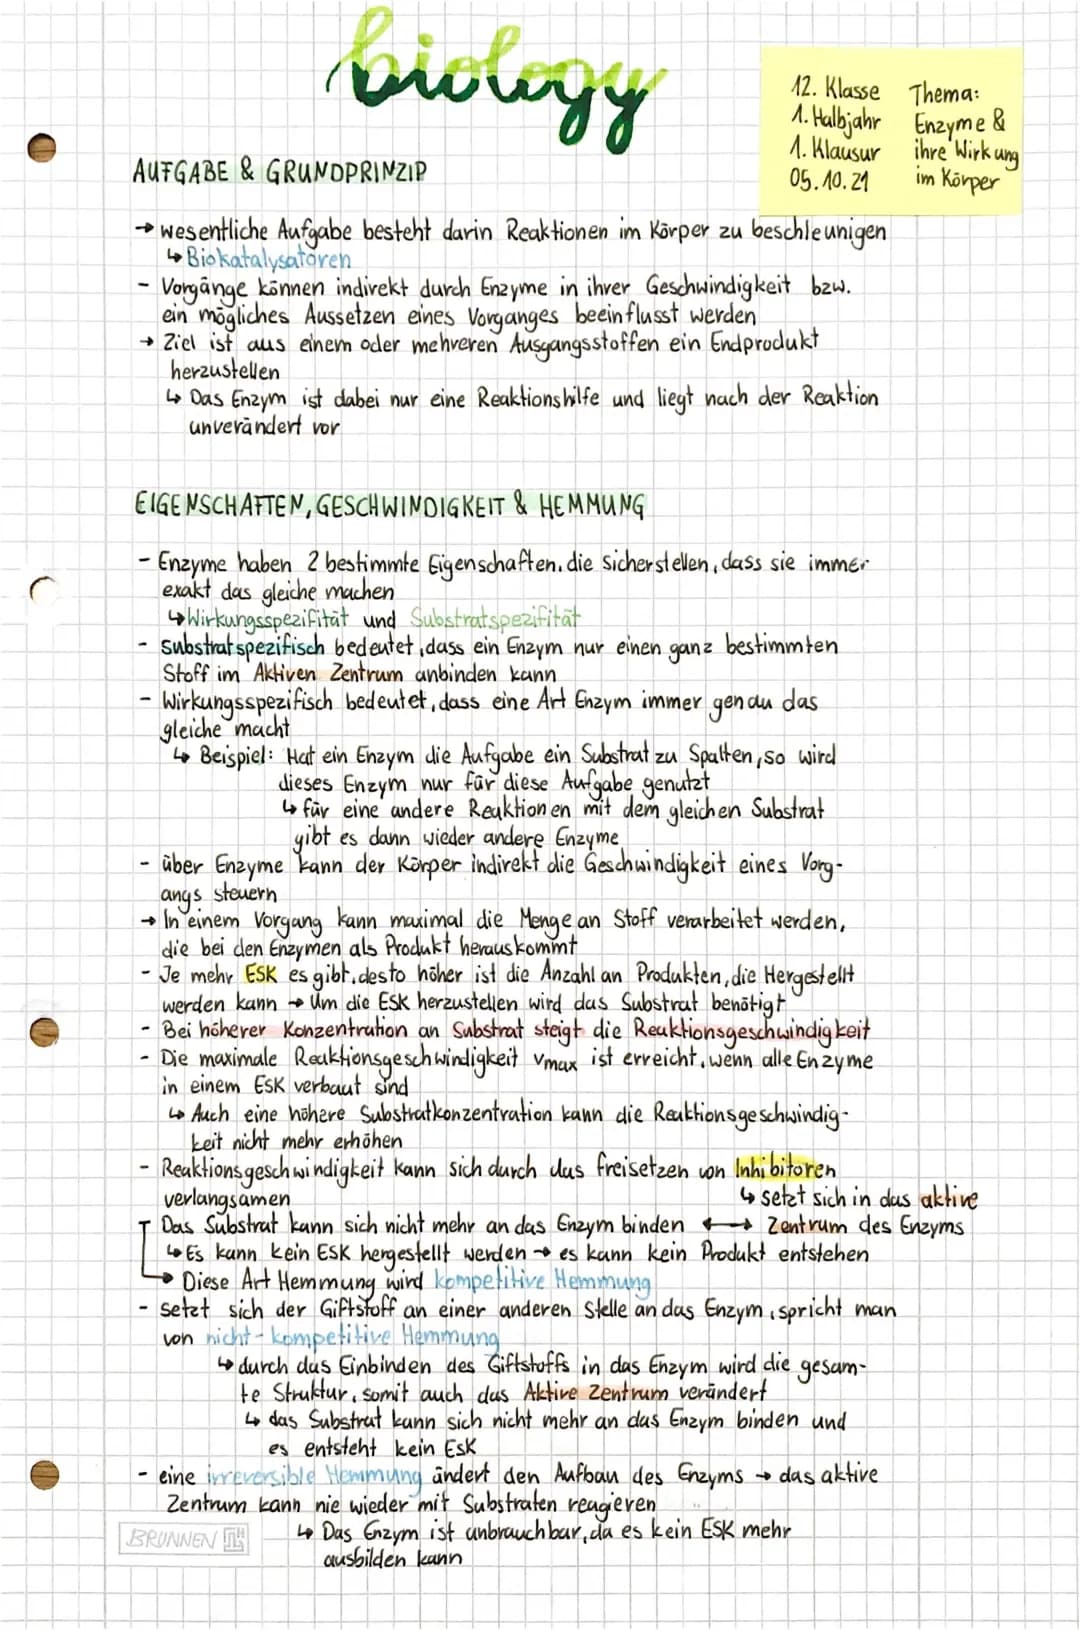 biology
12. Klasse
1. Halbjahr
1. Klausur
05.10.21
Thema:
Enzyme &
ihre Wirkung
im Körper
AUFGABE & GRUNDPRINZIP
→ wesentliche Aufgabe besteht darin Reaktionen im Körper zu beschleunigen
↳ Biokatalysatoren
- Vorgänge können indirekt durch Enzyme in ihrer Geschwindigkeit bzw.
ein mögliches Aussetzen eines Vorganges beeinflusst werden
→ Ziel ist aus einem oder mehreren Ausgangsstoffen ein Endprodukt
herzustellen
↳ Das Enzym ist dabei nur eine Reaktionshilfe und liegt nach der Reaktion
unverändert vor
EIGENSCHAFTEN, GESCHWINDIGKEIT & HEMMUNG
- Enzyme haben 2 bestimmte Eigenschaften, die Sicherstellen, dass sie immer
exakt das gleiche machen
↳ Wirkungsspezifität und Substratspezifität
- substratspezifisch bedeutet, dass ein Enzym nur einen ganz bestimmten
Stoff im Aktiven Zentrum anbinden kann
- Wirkungsspezifisch bedeutet, dass eine Art Enzym immer genau das
gleiche macht
↳ Beispiel: Hat ein Enzym die Aufgabe ein Substrat zu Spalten, so wird
dieses Enzym nur für diese Aufgabe genutzt
↳ für eine andere Reaktionen mit dem gleichen Substrat
gibt es dann wieder andere Enzyme
- über Enzyme kann der Körper indirekt die Geschwindigkeit eines Vorg-
angs steuern
→ In einem Vorgang kann maximal die Menge an Stoff verarbeitet werden,
die bei den Enzymen als Produkt herauskommt
- Je mehr ESK es gibt, desto höher ist die Anzahl an Produkten, die Hergestellt
werden kann → Um die ESK herzustellen wird das Substrat benötigt
- Bei höherer Konzentration an Substrat steigt die Reaktionsgeschwindigkeit
- Die maximale Reaktionsgeschwindigkeit vmax ist erreicht, wenn alle Enzyme
in einem ESK verbaut sind
↳ Auch eine höhere Substratkonzentration kann die Reaktionsgeschwindig-
keit nicht mehr erhöhen
- Reaktionsgeschwindigkeit kann sich durch das freisetzen von Inhibitoren
verlangsamen ↳ setzt sich in das aktive
Das Substrat kann sich nicht mehr an das Enzym binden ⟷ Zentrum des Enzyms
↳ Es kann kein ESK hergestellt werden → es kann kein Produkt entstehen
→ Diese Art Hemmung wird kompetitive Hemmung
- setzt sich der Giftstoff an einer anderen Stelle an das Enzym, spricht man
von nicht-kompetitive Hemmung
↳ durch das Einbinden des Giftstoffs in das Enzym wird die gesam-
te Struktur, somit auch das Aktive Zentrum verändert
↳ das Substrat kann sich nicht mehr an das Enzym binden und
es entsteht kein ESK
- eine irreversible Hemmung ändert den Aufbau des Enzyms → das aktive
Zentrum kann nie wieder mit Substraten reagieren
↳ Das Enzym ist unbrauchbar, da es kein ESK mehr
ausbilden kann
BRUNNEN